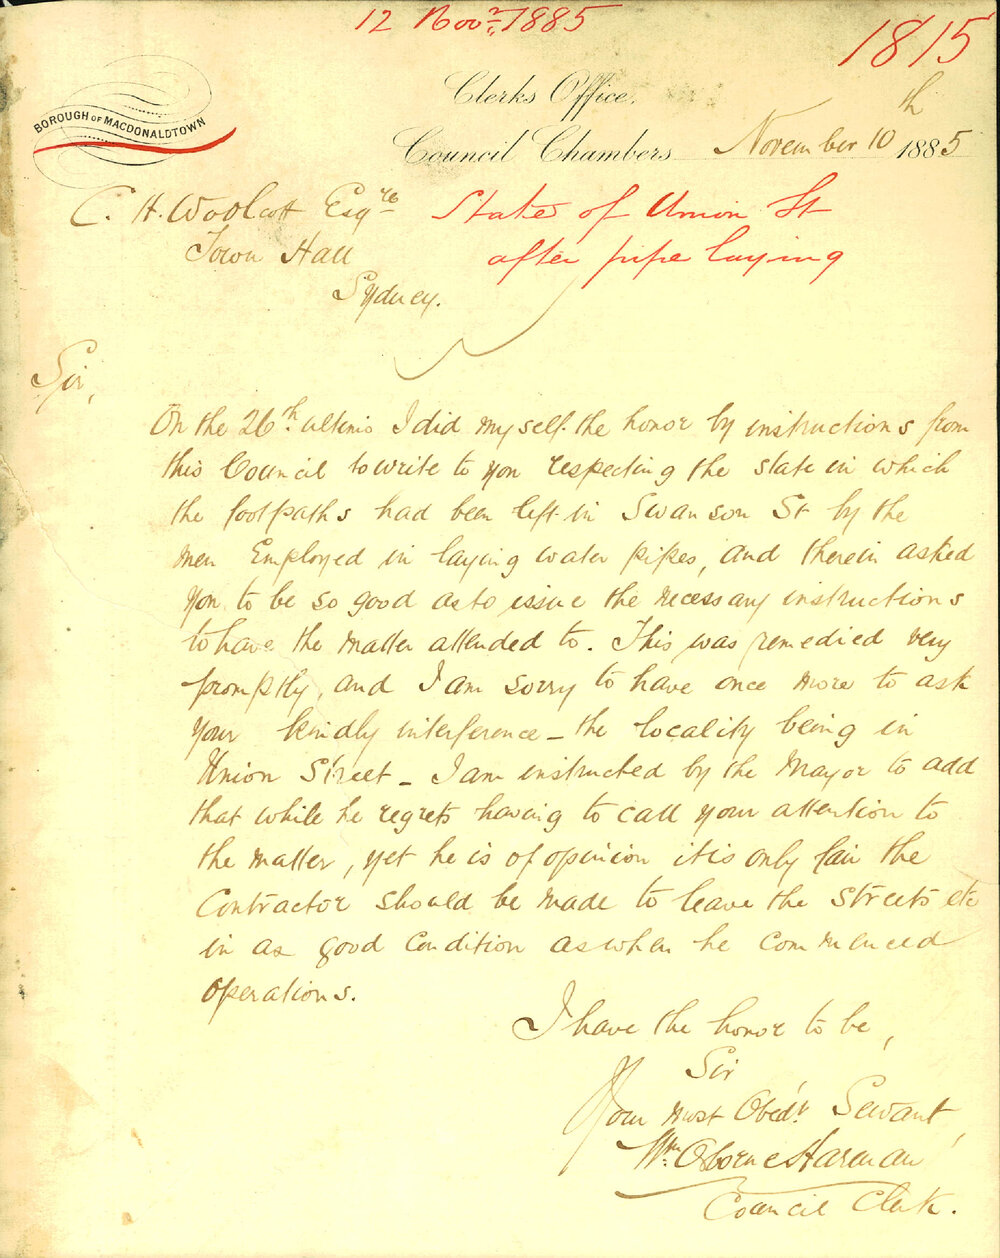 12 Novr 1885
1815
BOROUGH OF MACDONALDTOWN
Clerks Office,
Council Chambers November 10th 1885
C. H. Woolcott Esqre
Town Hall
Sydney.
State of Union St
after pipe laying
Sir,
On the 26th ultimo I did myself the honor by instructions from
this Council to write to you respecting the state in which
the footpaths had been left in Swanson St by the
men Employed in laying water pipes, and therein asked
you to be so good as to issue the necessary instructions
to have the matter attended to. This was remedied very
promptly, and I am sorry to have once more to ask
your kindly interference – the locality being in
Union Street – I am instructed by the Mayor to add
that while he regrets having to call your attention to
the matter, yet he is of opinion it is only fair the
Contractor should be made to leave the streets etc
in as good condition as when he commenced
operations.
I have the honor to be,
Sir
Your most Obedt. Servant,
Wm Osborne Harman
Council Clerk.